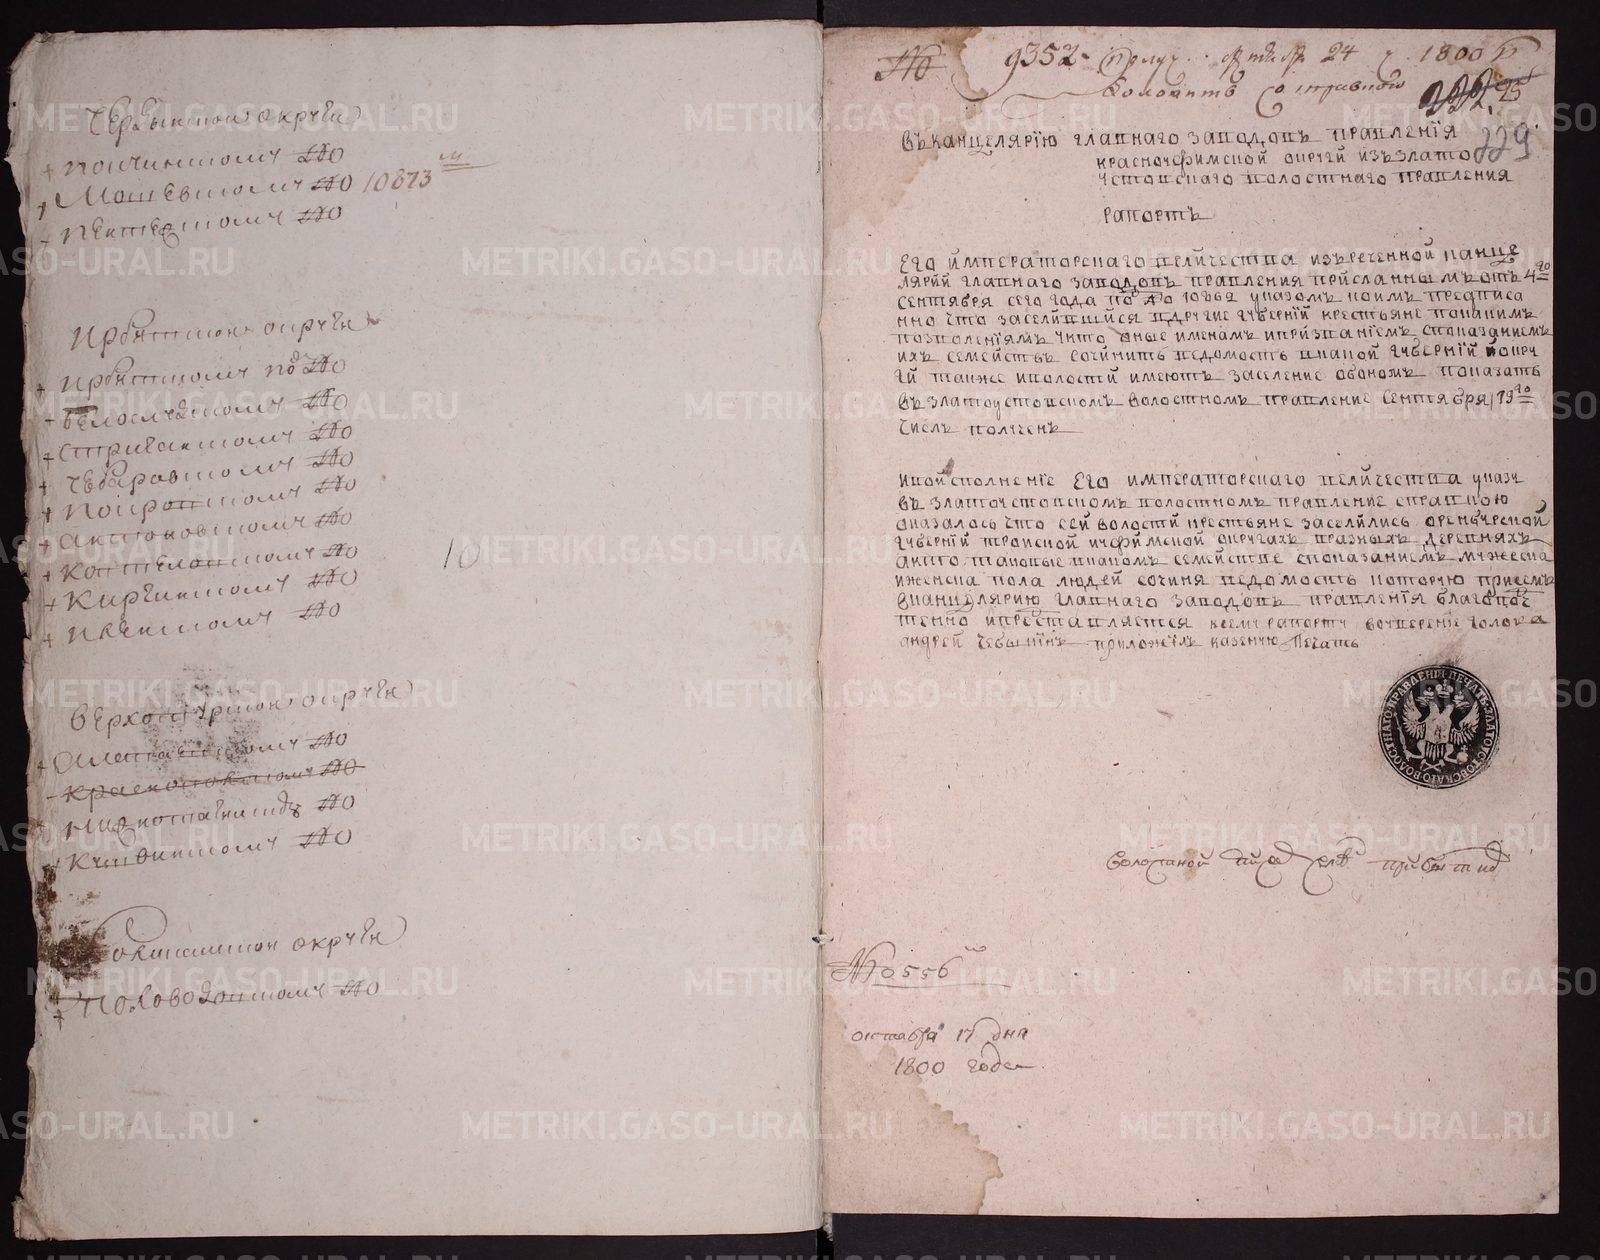 Чердынской округи
Пончинскому №
Мошевскому № 10873
Пентежскому №
Ирбитской округи
Ирбитскому под №
Белослудскому №
Стриганскому №
Чебаровскому №
Покровскому №
Антоновскому №
Костелонскому №
Киргинскому №
Верхотурской округи
Алапаевскому №
№
Кушвинскому №
округи
Половодовскому №
10
№ 9352 получ. октября 24 ч. 1800 г
Доложить со справкой
222. 25
229
Въ канцелярию главнаго заводовъ правленія
Красноуфимской округи изъ Злато
устовскаго волостнаго правления
рапортъ
Его императорскаго величества изъ реченной канце
лярии главнаго заводовъ правления присланнымъ отъ 4го
сентября сего года по № 10862 указомъ коимъ предписа
нно что заселившися в другие губернии крестьяне по каким
позволениямъ и кто оные именам и призваниемъ с показаниемъ
ихъ семействъ сочинить ведомость в какой губернии и окру
ги также и волости имеютъ заселение о оном показать
въ златоустовскомъ волостномъ правление сентября 19го
числ получен
и во исполнение Его императорскаго величества указу
въ златоустовском волостномъ правление справкою
оказалось что сей волости крестьяне заселились оренбурской
губернии троиской и уфимской округах в разных деревняхъ
а кто таковые и в каком семействе с показанием мужеска
и женска пола людей сочиня ведомость которую при семъ
в канцелярию главнаго заводовъ правления благопоч
тенно и преставляется к сему рапорту вочперение голова
андрей чебыкинъ приложил казенную печать
ПЕЧАТЬ ЗЛАТОУСТОВСКАГО ВОЛОСТНАГО ПРАВЛЕНІЯ
Волостной
№ 556
октября 17 дня
1800 года
METRIKI.GASO-URAL.RU